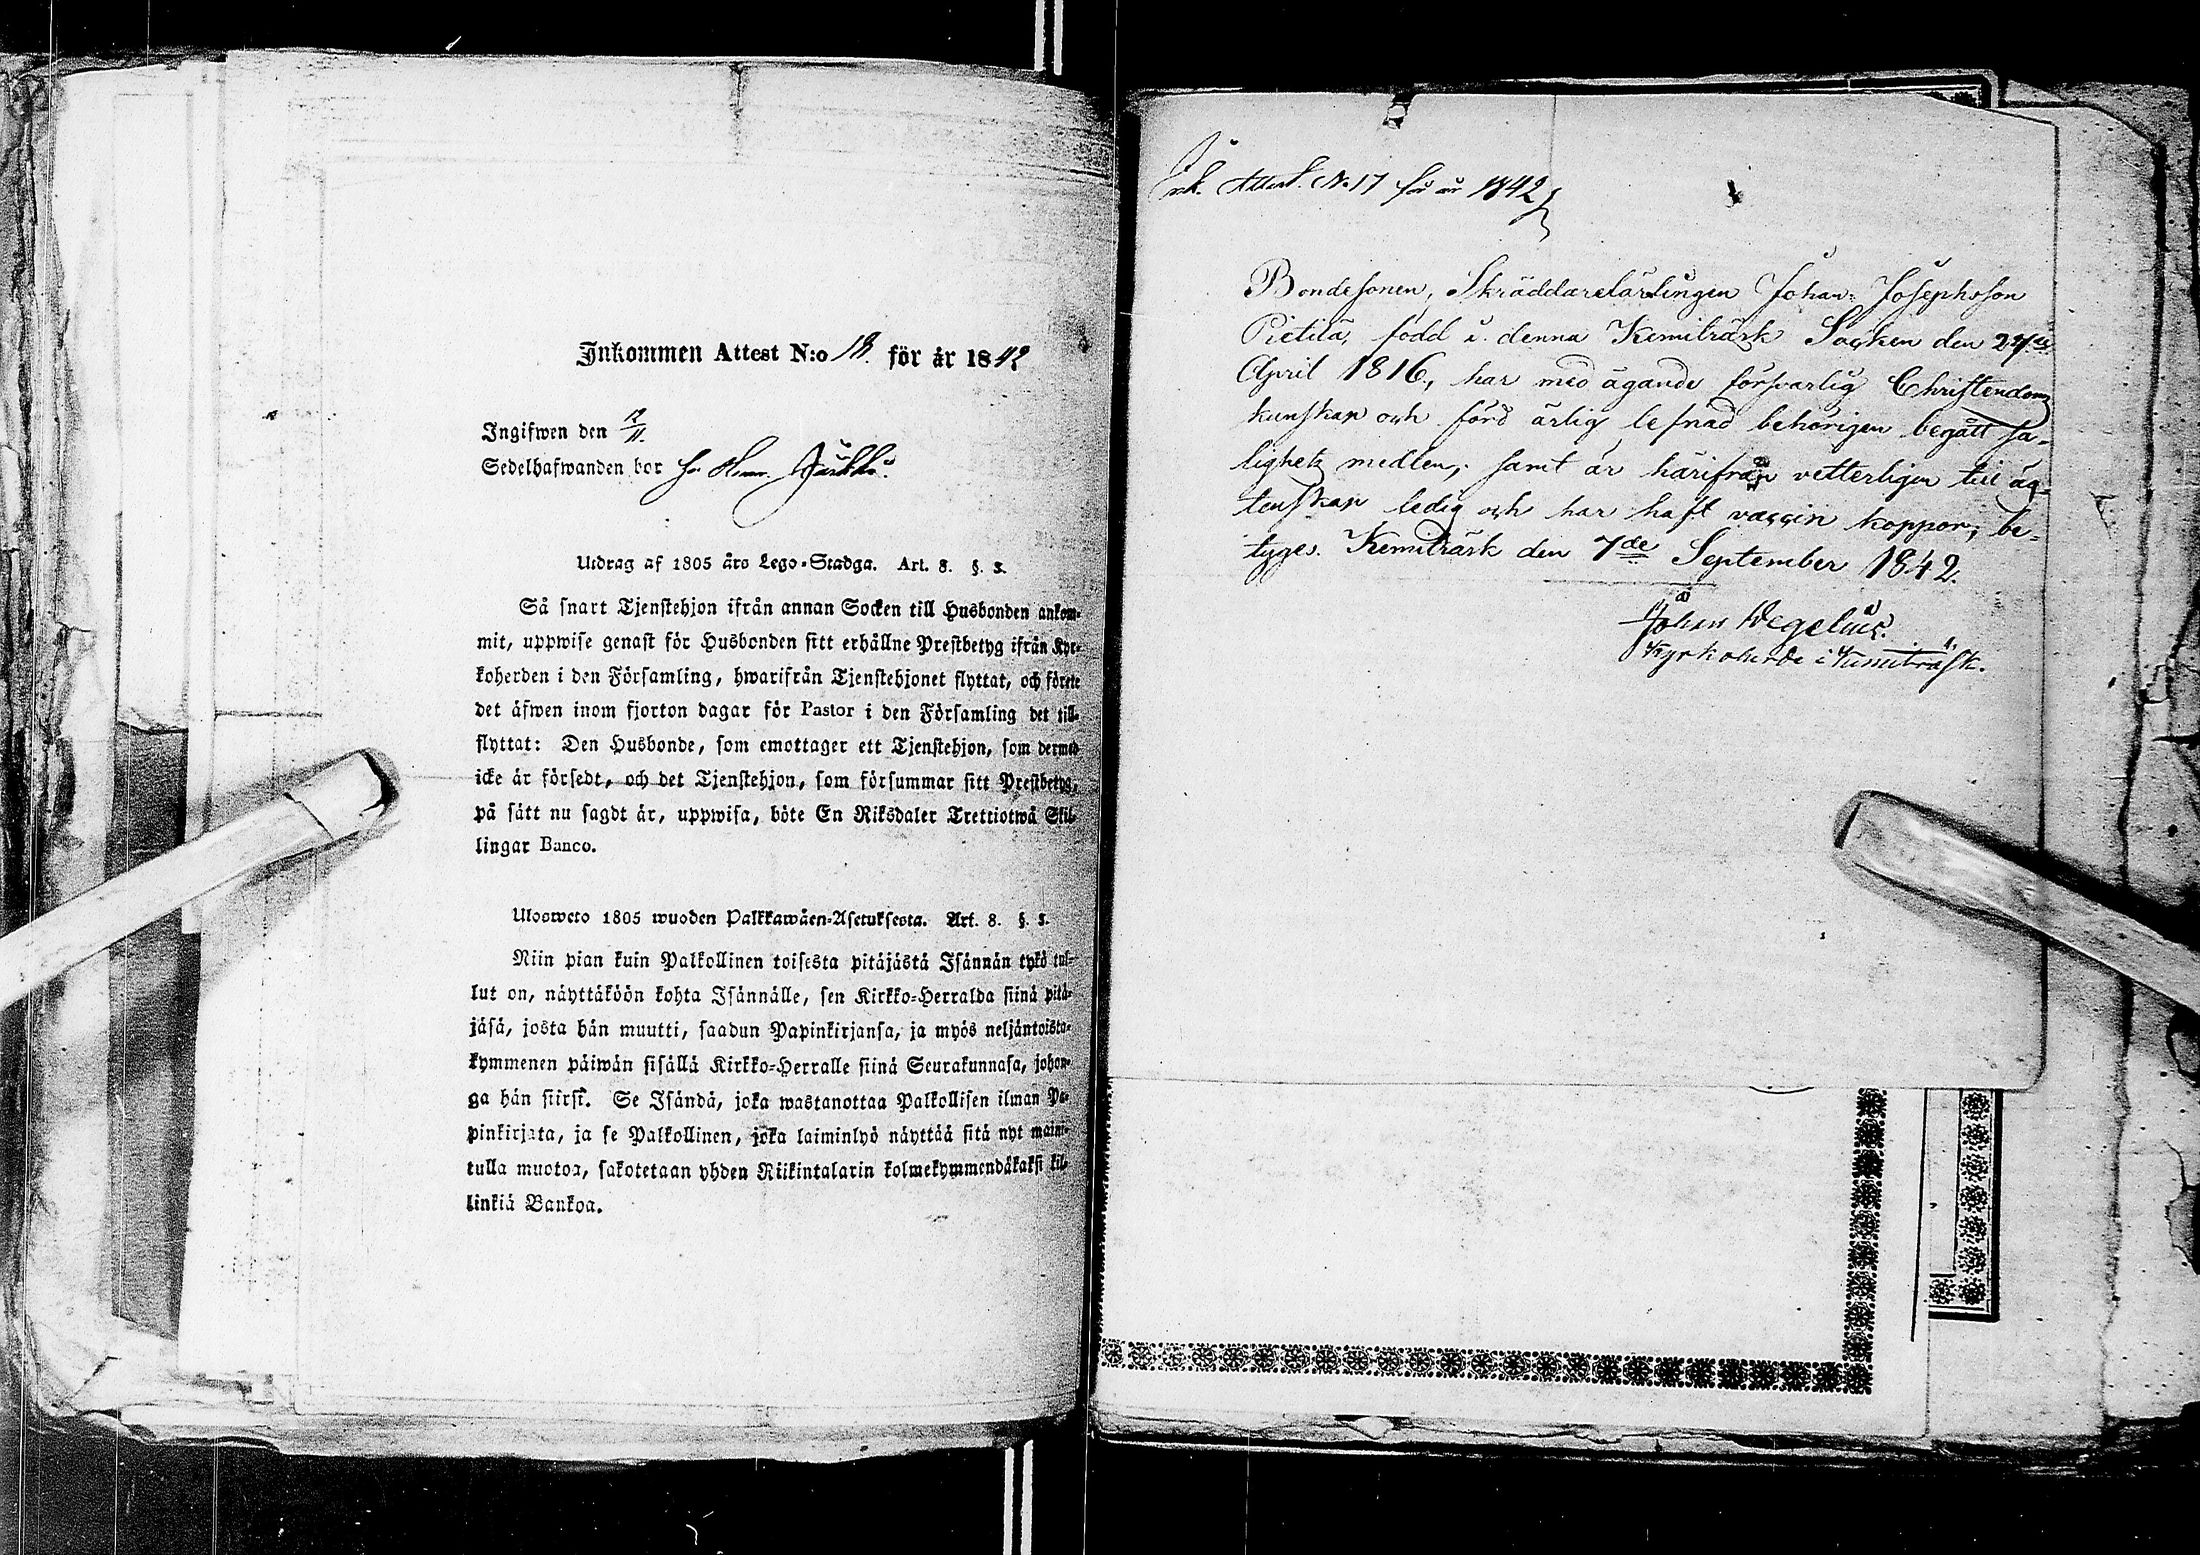 Inkommen Attest N:o 18. för år 1842
Ingifwen den 12/11.
Sedelhafwanden bor
Utdrag af 1805 års Lego-Stadga. Art. 8. §. 3.
Så snart Tjenstehjon ifrån annan Socken till Husbonden ankom-
mit, uppwise genast för Husbonden sitt erhållne Prestbetyg ifrån Kyr-
koherden i den Församling, hwarifrån Tjenstehjonet flyttat, och förete
det äfwen inom fjorton dagar för Pastor i den Församling det till-
flyttat: Den Husbonde, som emottager ett Tjenstehjon, som dermed
icke är försedt, och det Tjenstehjon, som försummar sitt Prestbetyg,
på sätt nu sagdt är, uppwisa, böte En Riksdaler Trettiotwå Skil-
lingar Banco.
Ulosweto 1805 wuoden Palkkawäen-Asetuksesta. Art. 8. §. 3.
Niin pian kuin Palkollinen toisesta pitäjästä Isännän tykö tul-
lut on, näyttäköön kohta Isännälle, sen Kirkko-Herralda siinä pitä-
jäsä, josta hän muutti, saadun Papinkirjansa, ja myös neljäntoista-
kymmenen päiwän sisällä Kirkko-Herralle siinä Seurakunnasa, johon-
ga hän siirsi. Se Isändä, joka wastanottaa Palkollisen ilman Pa-
pinkirjata, ja se Palkollinen, joka laiminlyö näyttää sitä nyt maini-
tulla muotoa, sakotetaan yhden Riikintalarin kolmekymmendäkaksi kil-
linkiä Bankoa.
Ink. Attest. No 17 för år 1842
Bondesonen, Skräddarelärlingen Johan Josephsson
Pietilä, född i denna Kemiträsk Socken den
April 1816, har med ägande försvarlig Christendoms
kunskap och förd ärlig lefnad behörigen begått sa-
lighets medlen, samt är härifrån vetterligen till äg-
tenskap ledig och har haft vaccin koppor, be-
tyges. Kemiträsk den 7de September 1842.
Johan Wegelius.
Kyrkoherde i Kemiträsk.